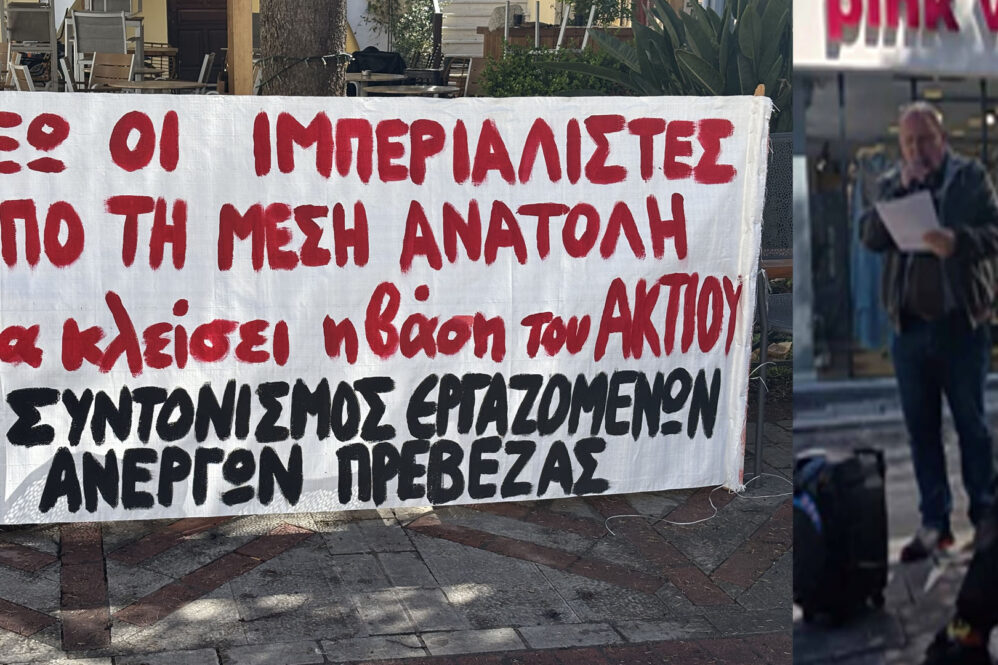 ΞΩ ΟΙ ΙΜΠΕΡΙΑΛΙΣΤΕΣ
ΠΟ ΤΗ ΜΕΣΗ ΑΝΑΤΟΛΗ
α κλείσει η βάση του ΑΚΤΙΟΥ
ΣΥΝΤΟΝΙΣΜΟΣ ΕΡΓΑΖΟΜΕΝΩΝ
ΑΝΕΡΓΩΝ ΠΡΕΒΕΖΑΣ
pink